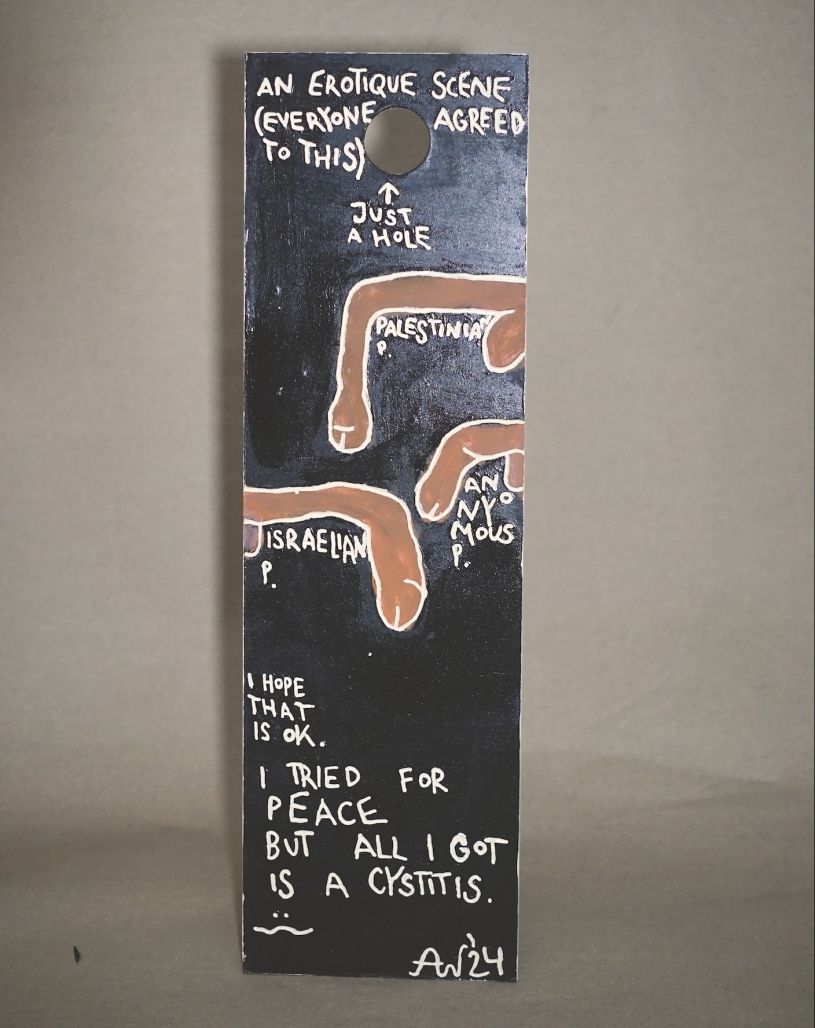 AN EROTIQUE SCENE
(EVERYONE AGREED
TO THIS)
↑
JUST
A HOLE
PALESTINIAN
P.
ANO
NY
MOUS
P.
ISRAELIAN
P.
I HOPE
THAT
IS OK.
I TRIED FOR
PEACE
BUT ALL I GOT
IS A CYSTITIS.
AW'24